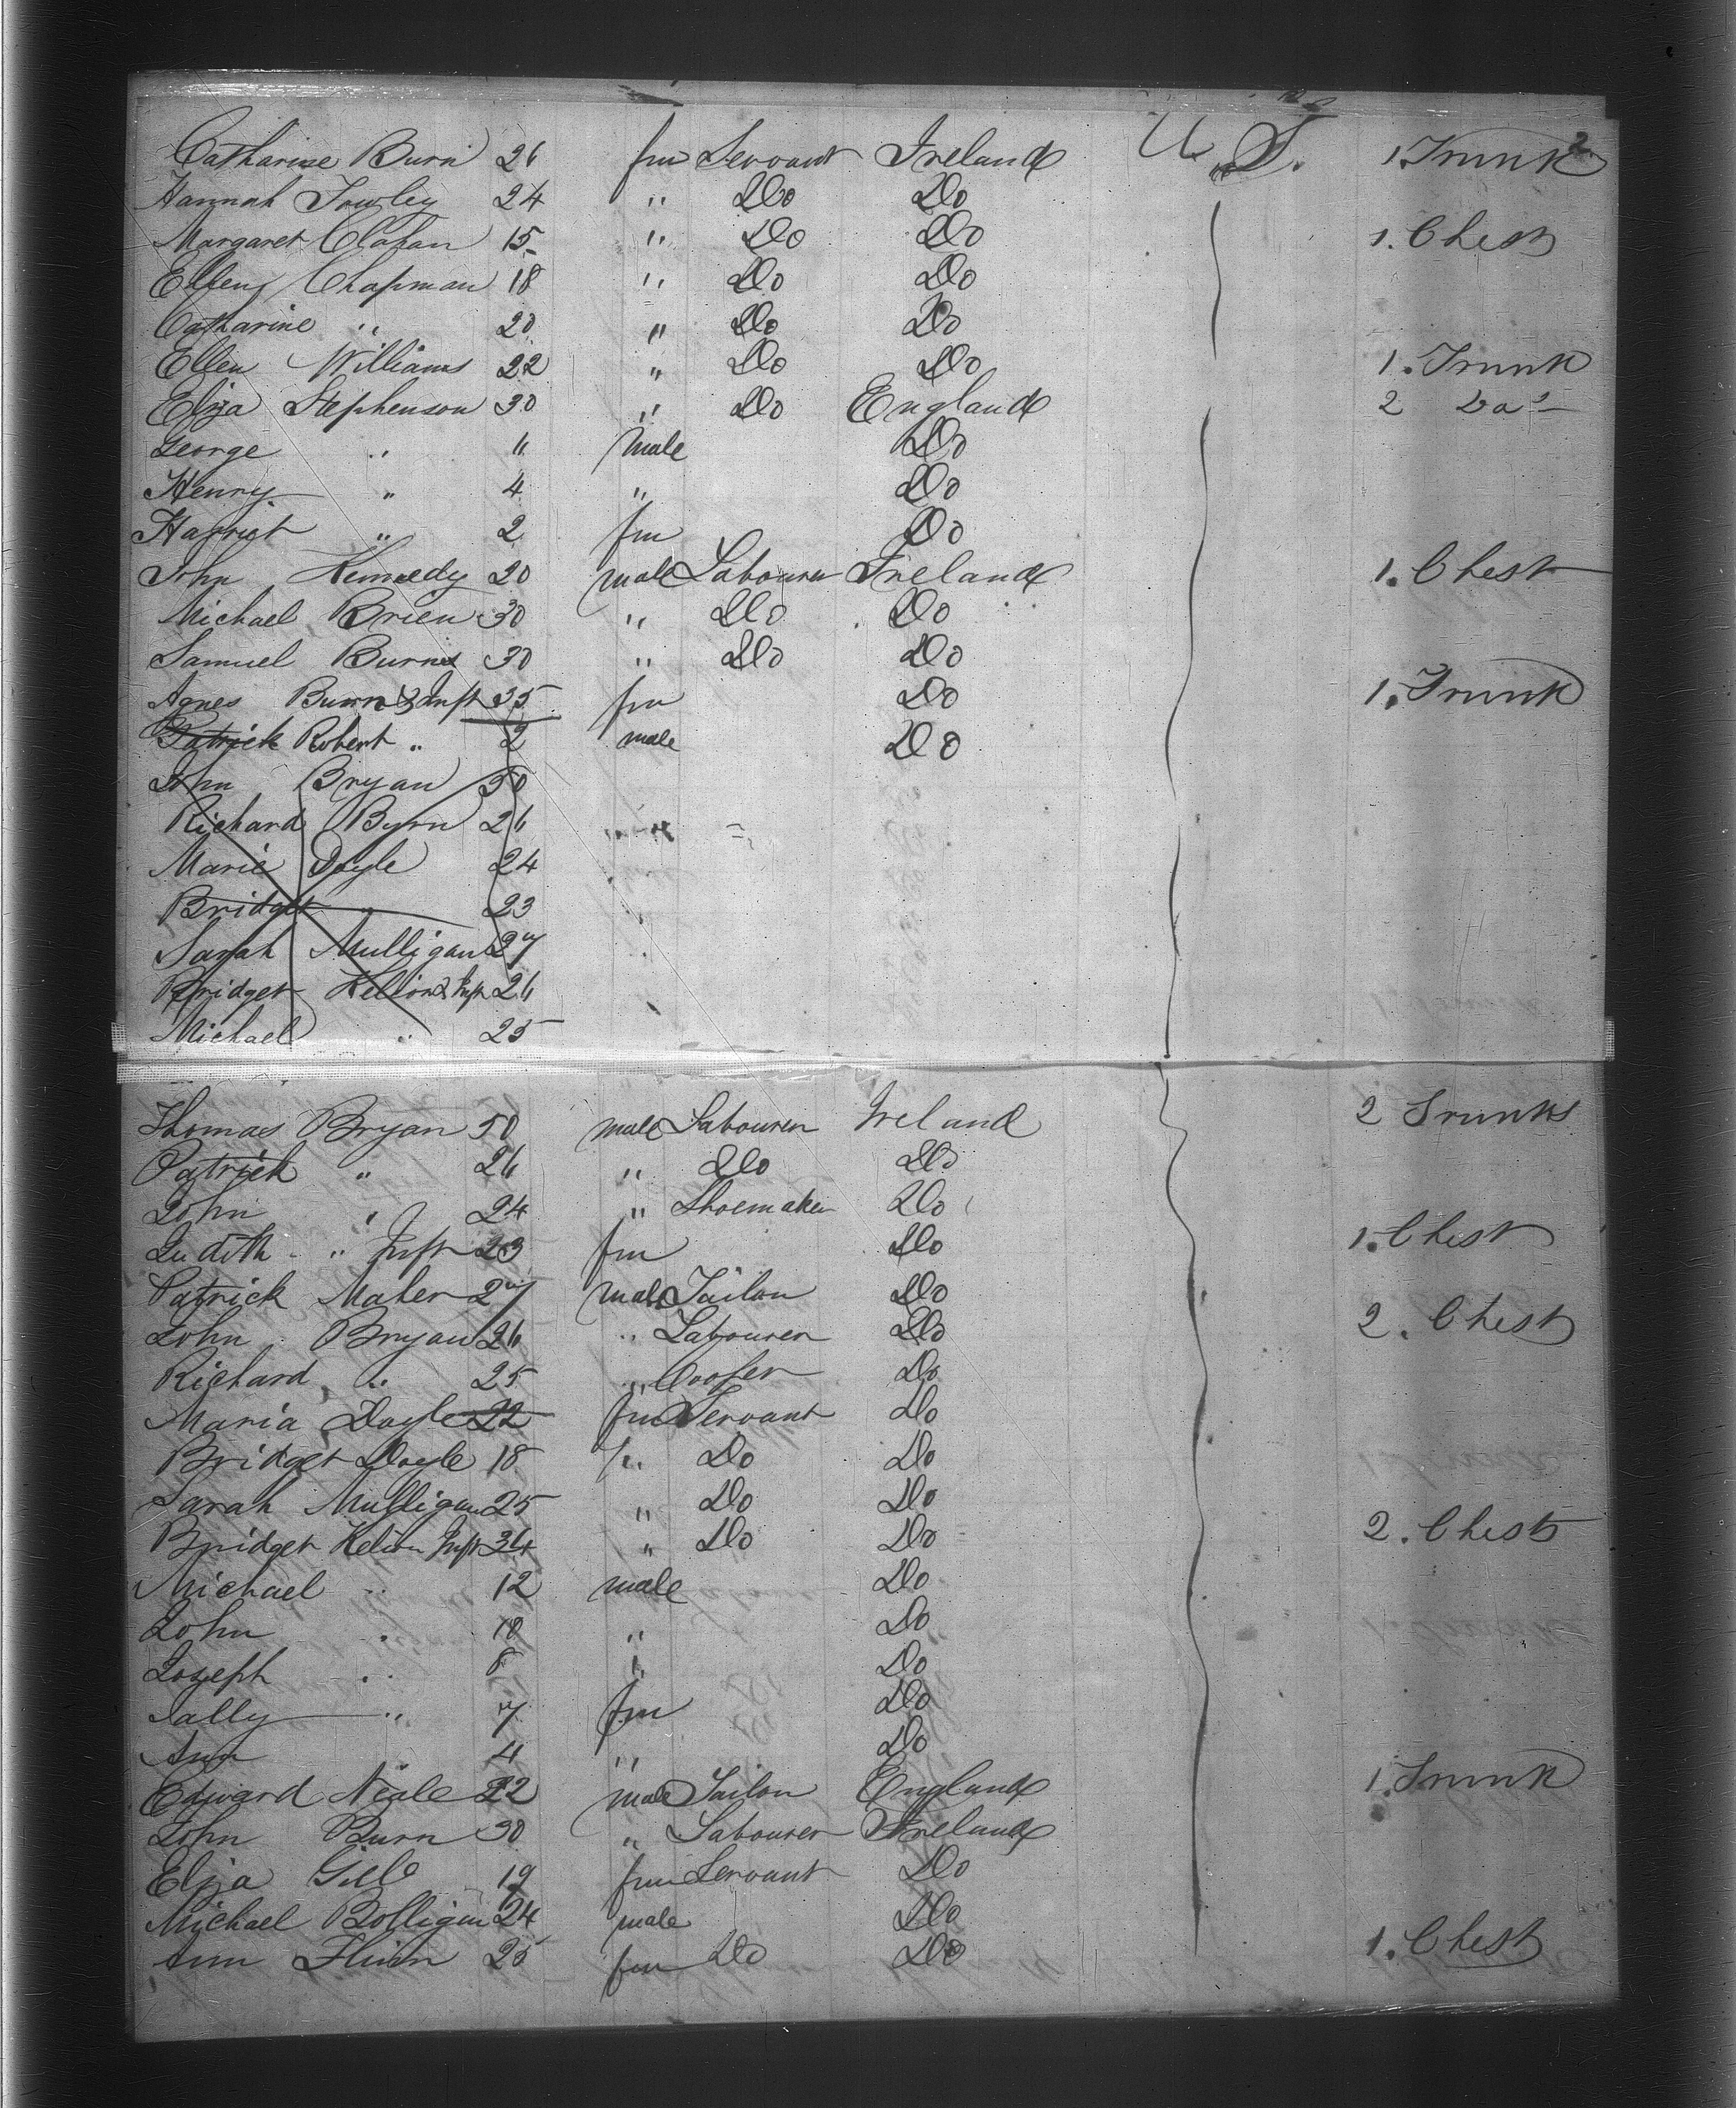 2
Catharine Burn 26 fm Servant Ireland U.S. 1. Trunk
Hannah Fowley 24 " Do Do
Margaret Clahan 15 " Do Do 1. Chest
Ellen Chapman 18 " Do Do
Catharine " 20 " Do Do
Ellen Williams 22 " Do Do 1. Trunk
Eliza Stephenson 30 " Do England 2 Do
George " 11 male Do
Henry " 4 " Do
Harriet " 2 fm Do
John Kennedy 20 male Labourer Ireland 1. Chest
Michael Brien 30 " Do Do
Samuel Burns 30 " Do Do
Agnes Burn & Inft 35 fm Do 1. Trunk
Patrick Robert " 2 male Do
John Bryan 50
Richard Byrn 26
Marie Doyle 24
Bridget " 23
Sarah Mulligan 27
Bridget Kelion & Inft 26
Michael " 25
Thomas Bryan 50 male Labourer Ireland 2 Trunks
Patrick " 26 " Do Do
John " 24 " Shoemaker Do
Judith " Inft 23 fm Do 1. Chest
Patrick Maher 27 male Tailor Do
John Bryan 26 " Labourer Do 2. Chest
Richard " 25 " Cooper Do
Maria Doyle 22 fm Servant Do
Bridget Doyle 18 " Do Do
Sarah Mulligan 25 " Do Do
Bridget Kelion Inft 34 " Do Do 2. Chests
Michael " 12 male Do
John " 10 " Do
Joseph " 8 " Do
Sally " 7 fm Do
Ann " 4 " Do
Edward Neale 22 male Tailor England 1. Trunk
John Burn 30 " Labourer Ireland
Eliza Gill 19 fm Servant Do
Michael Bolligan 24 male Do
Ann Flinn 25 fm Do Do 1. Chest